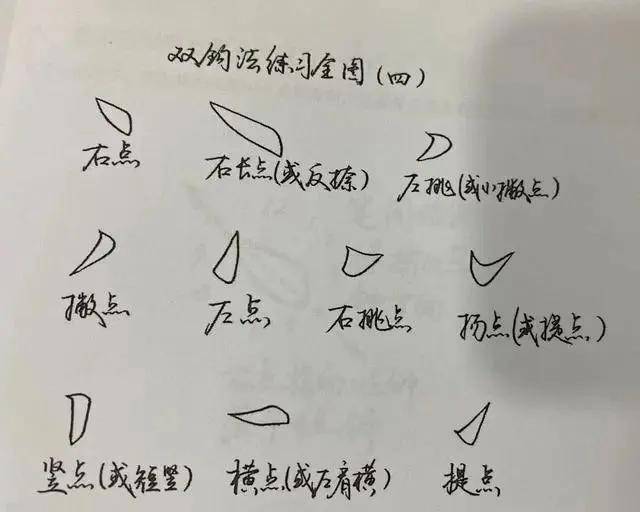 双钩法练习全图(四)
右点 右长点(或反捺) 左挑(或小撇点)
撇点 左点 右挑点 扬点(或提点)
竖点(或短竖) 横点(或左肩横) 提点